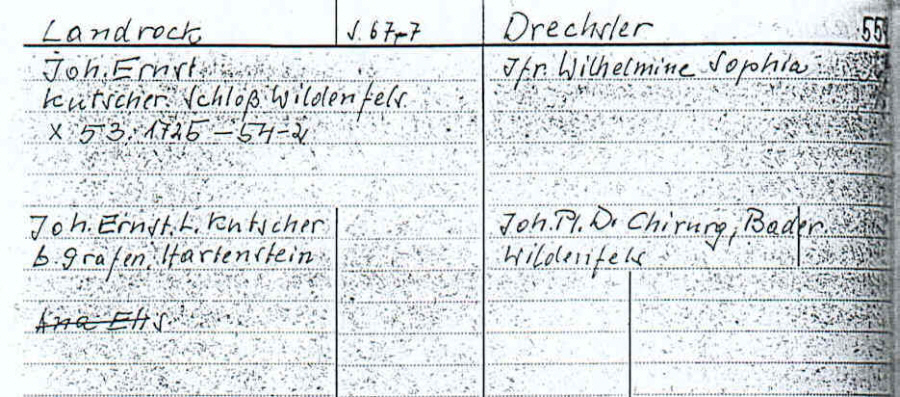 Landrock
S. 67-7
Drechsler
55
Joh. Ernst
Kutscher. Schloß Wildenfels
x 53. 1725 – 54-2
Jfr. Wilhelmine Sophia
Joh. Ernst. L. Kutscher
b. Grafen. Hartenstein
Ana Elis.
Joh. Pl. D. Chirurg, Bader
Wildenfels